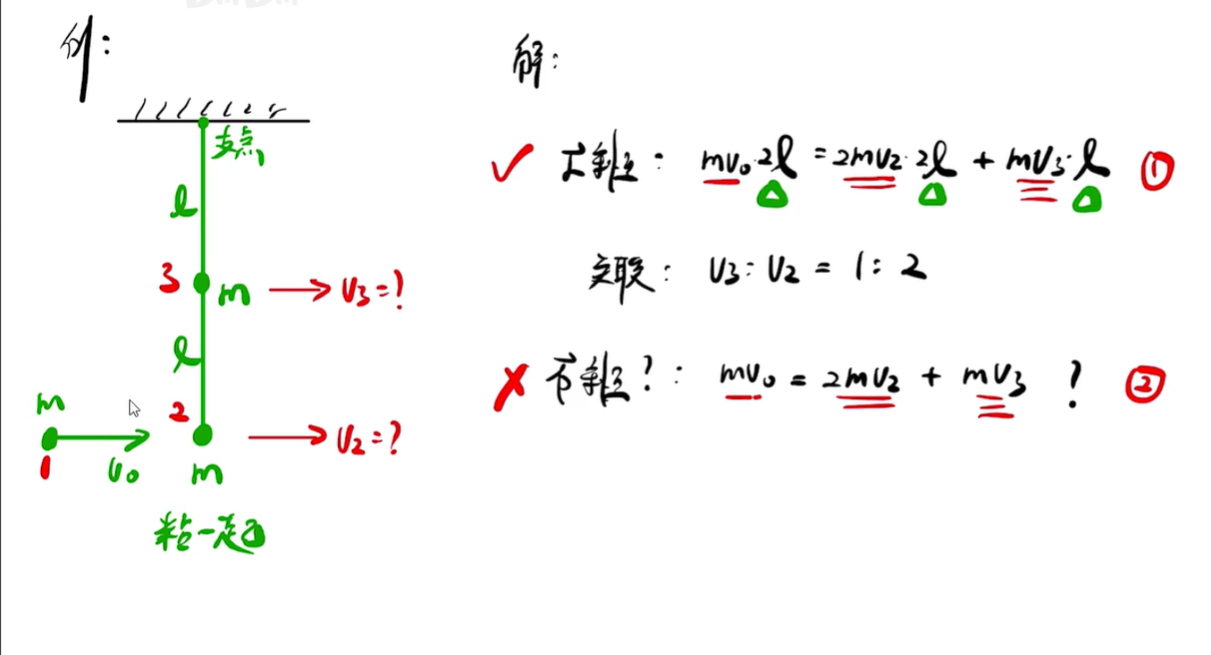 例:
支点
l
3 m v₃=?
l
m
2 v₂=?
1 v₀ m
粘一起
解:
✓ 守: mv₀·2l = 2mv₂·2l + mv₃·l ①
关联: v₃:v₂ = 1:2
✗ 守?: mv₀ = 2mv₂ + mv₃ ? ②